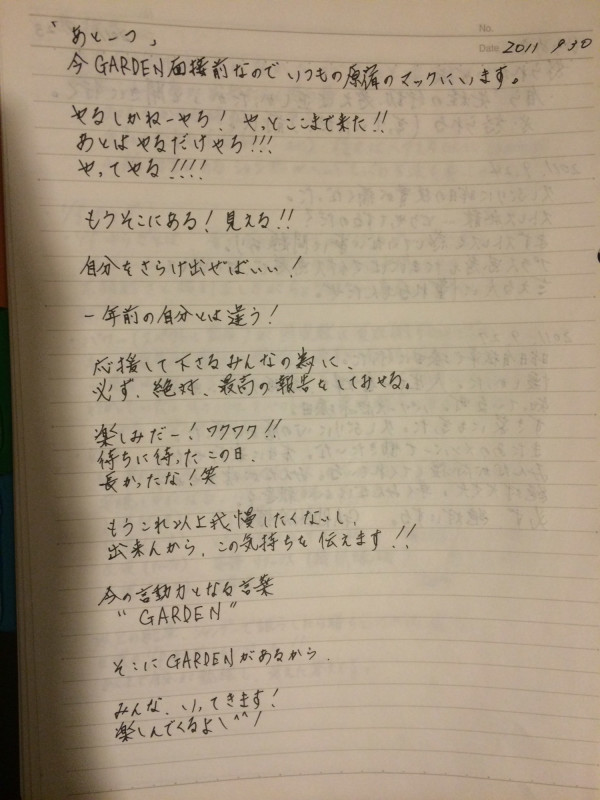 「あと一つ」
No.
Date 2011 9.30
今GARDEN面接前なのでいつもの原宿のマックにいます。
やるしかねーやろ! やっとここまで来た!!
あとはやるだけやろ!!!
やってやる!!!!
もうそこにある! 見える!!
自分をさらけ出せばいい!
一年前の自分とは違う!
応援して下さるみんなの為に、
必ず、絶対、最高の報告をしてみせる。
楽しみだー! ワクワク!!
待ちに待ったこの日、
長かったな! 笑
もうこれ以上我慢したくないし、
出来んから、この気持ちを伝えます!!
今の言動力となる言葉
"GARDEN"
そこにGARDENがあるから、
みんな、いってきます!
楽しんでくるよ\^^/